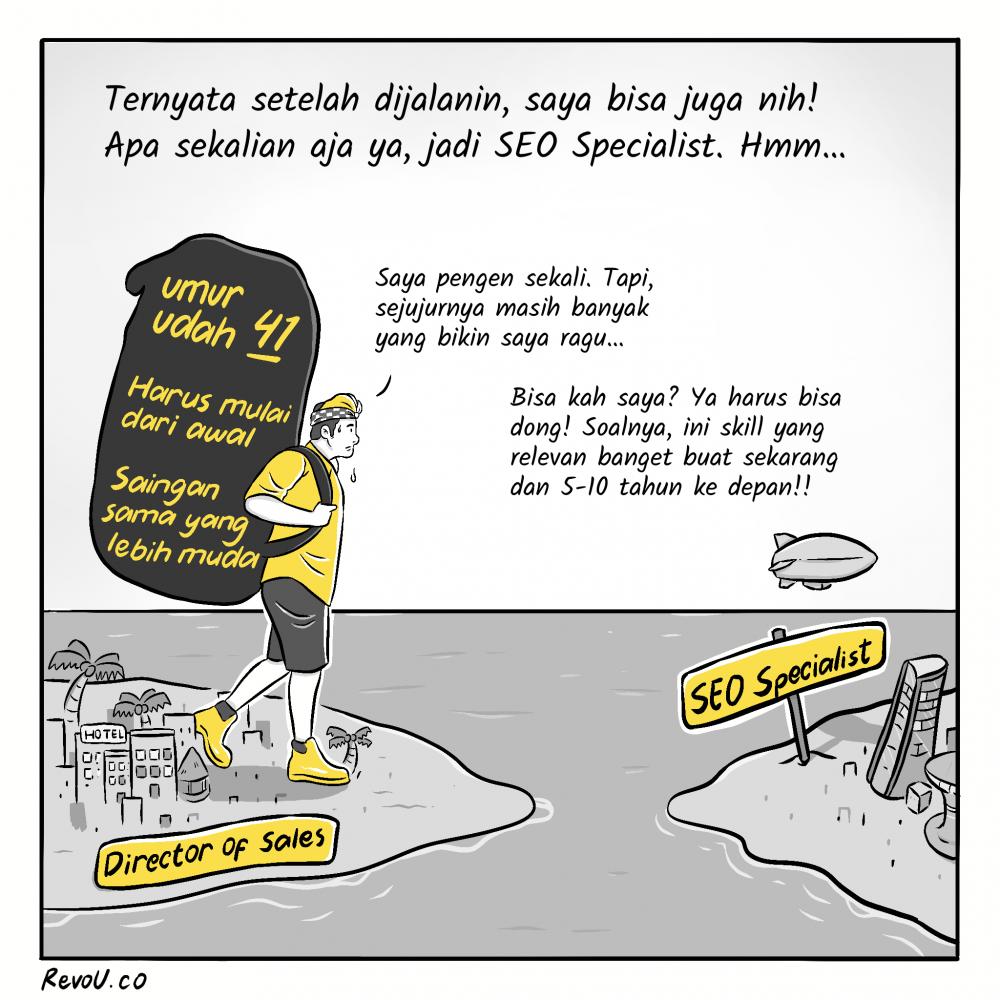 Ternyata setelah dijalanin, saya bisa juga nih!
Apa sekalian aja ya, jadi SEO Specialist. Hmm...
umur
udah 41
Harus mulai
dari awal
Saingan
sama yang
lebih muda
Saya pengen sekali. Tapi,
sejujurnya masih banyak
yang bikin saya ragu...
Bisa kah saya? Ya harus bisa
dong! Soalnya, ini skill yang
relevan banget buat sekarang
dan 5-10 tahun ke depan!!
SEO Specialist
HOTEL
Director of Sales
RevoU.co